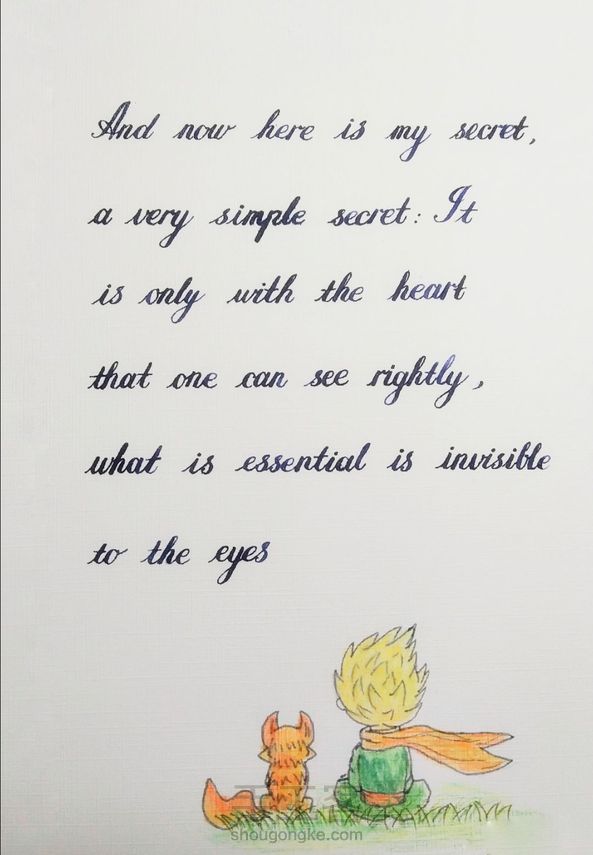 And now here is my secret,
a very simple secret: It
is only with the heart
that one can see rightly,
what is essential is invisible
to the eyes
shougongke.com